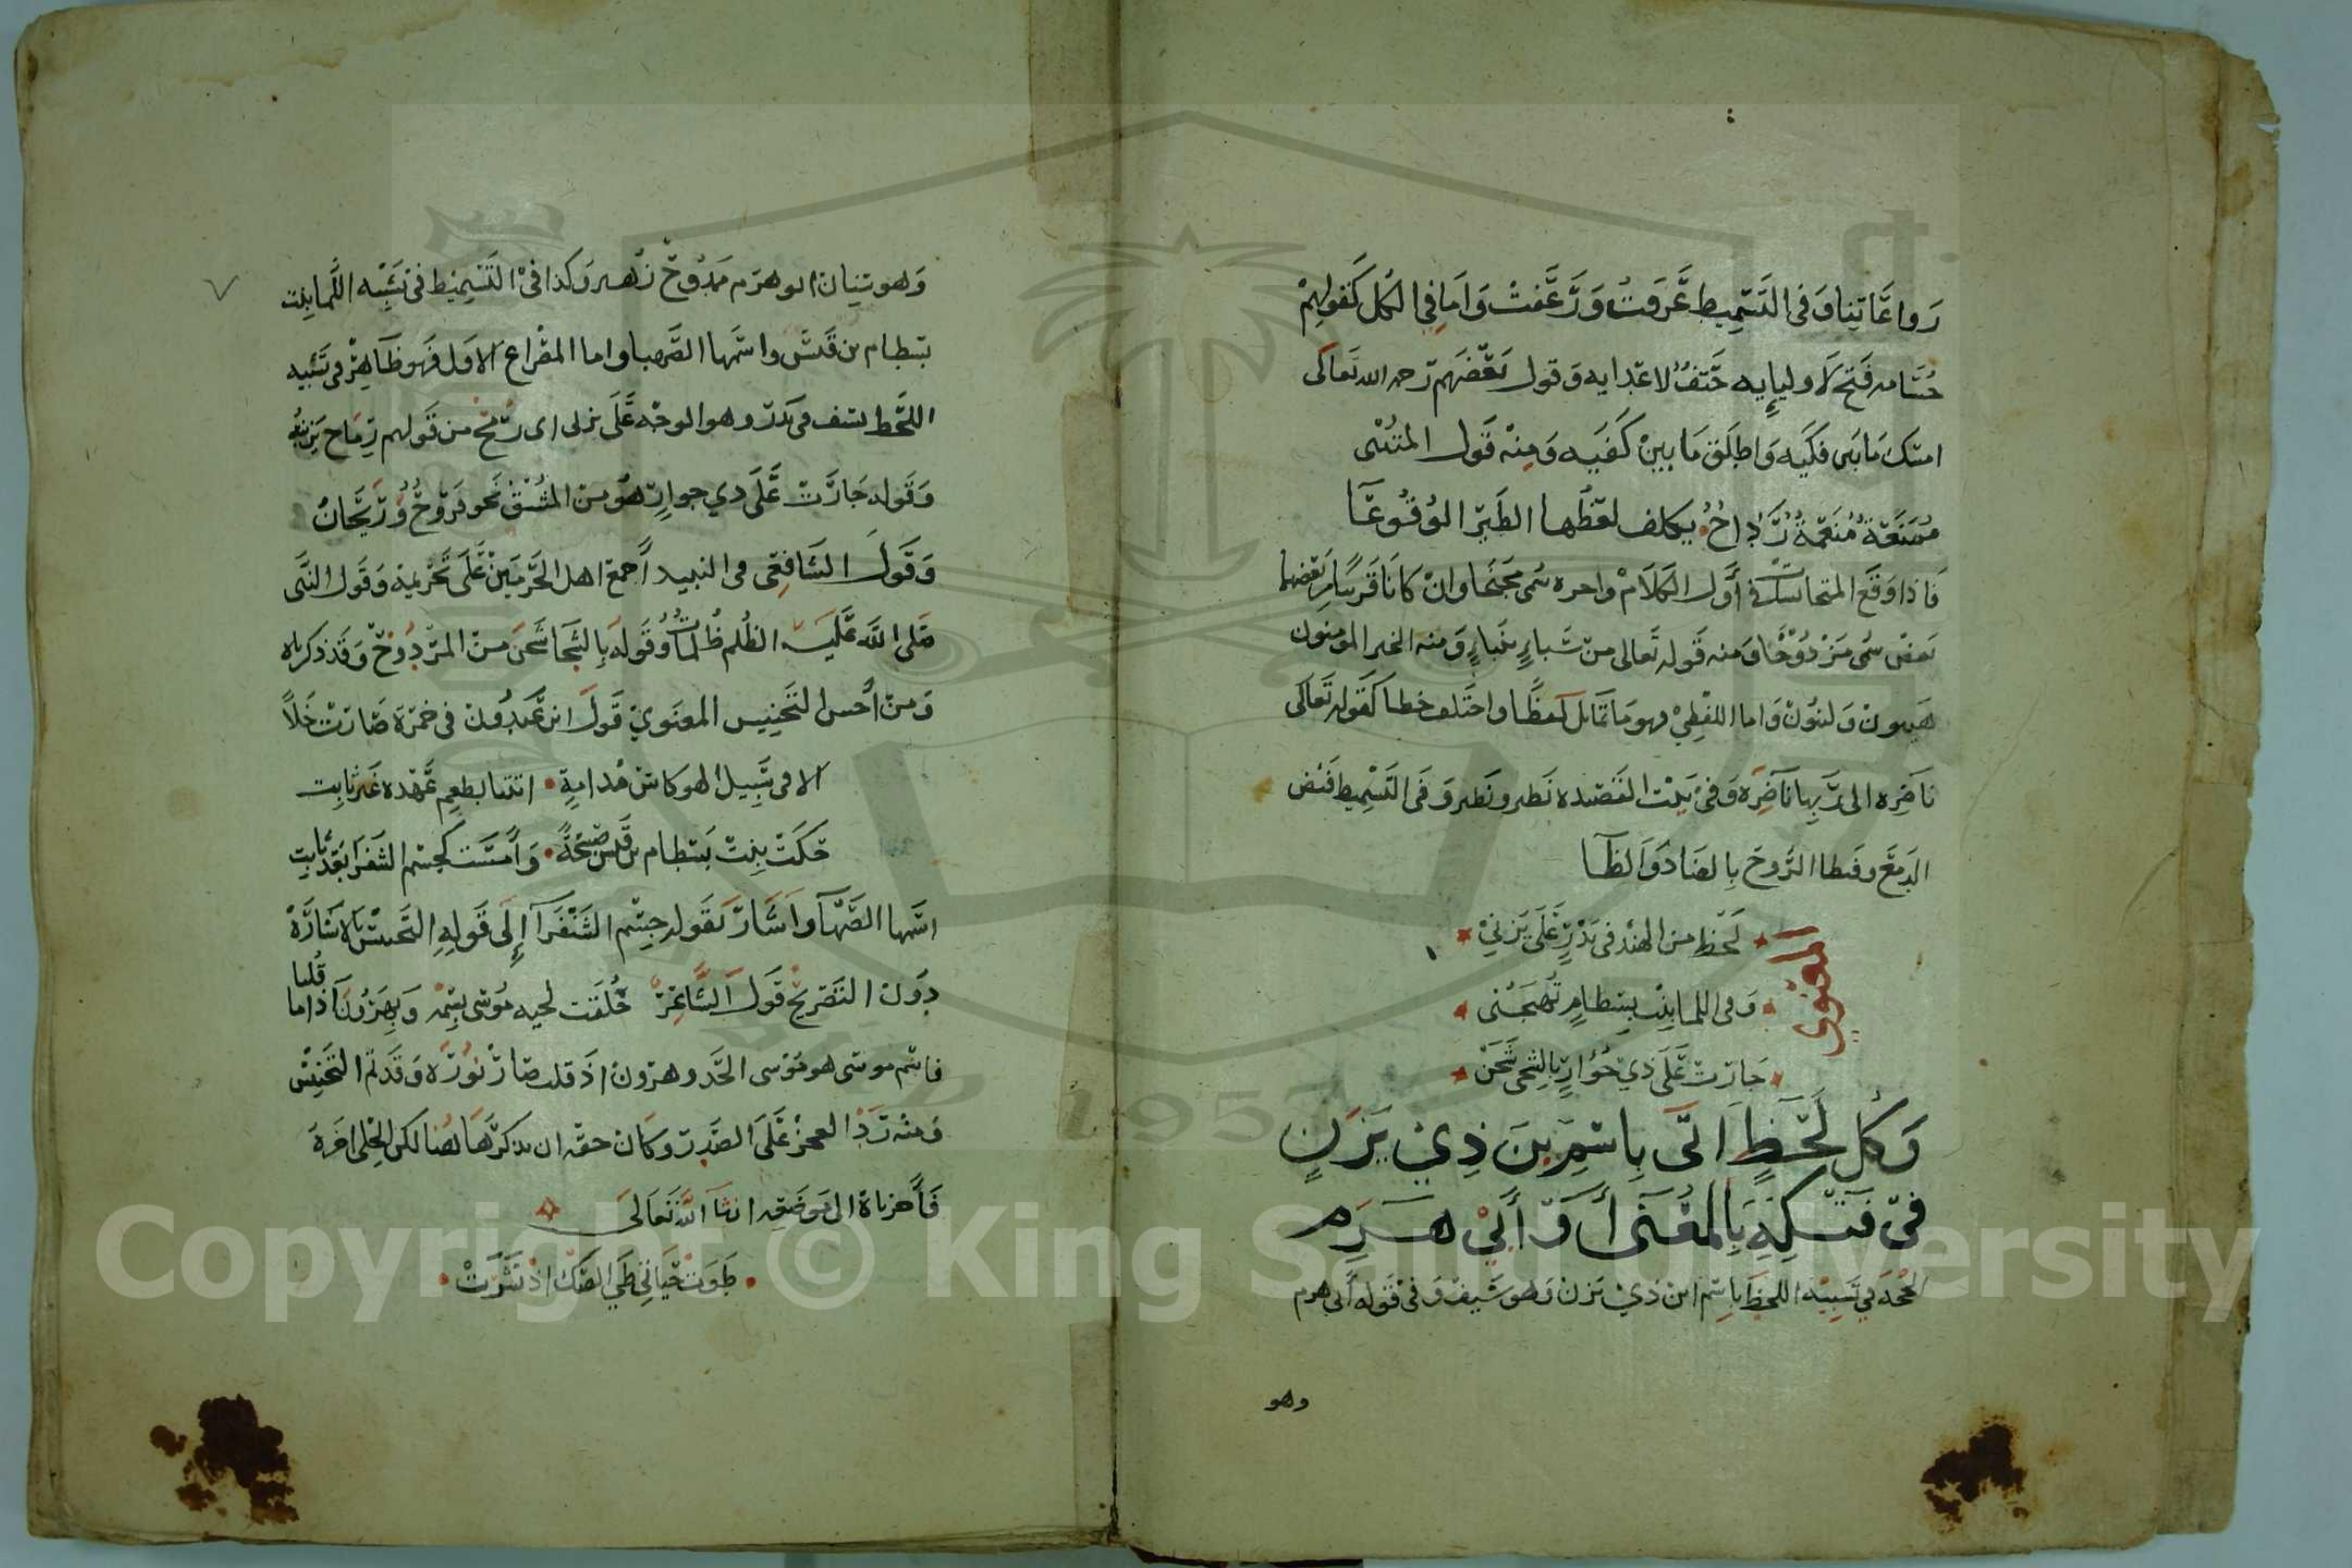 رواعاتنا وفى التسميط عرفت ورعفت واما فى الكل كقولهم
حسامه فتح لاوليايه حتف لاعدايه وقول بعضهم رحمه الله تعالى
امسك مابين فكيه واطلق ما بين كفيه ومنه قول المتنبى
ممنعة منعمة رداح يكلف لفظها الطير الوقوعا
فاذا وقع المتجانسان فى أول الكلام واخره سمى مجنحا وان كانا قريبا من بعضهما
بعض سمى مزدوجا ومنه قوله تعالى من سبإ بنبإ ومنه الخبر المومنون
هينون ولينون واما اللفظي وهو ما تماثل لفظا واختلف خطا كقوله تعالى
ناضره الى ربها ناظره وفى بيت القصيده نظير ونضير وفى التسميط فيض
الدمع وفيظ الروح بالضاد والظا
المعنوي
لحظ من الهند فى بدر على يزني
وفى اللما بنت بسطام تهيجنى
جارت على ذي جوار بالشجى شجن
وكل لحظ اتى باسم بن ذي يزن
فى فتكه بالمعنى أو أبي هرم
الحجه فى تشبيه اللحظ باسم ابن ذي يزن وهو سيف وفى قوله أبي هرم
وهو
وهو سنان ابو هرم ممدوح زهير وكذا فى التسميط فى تشبيه اللما ببنت
بسطام بن قيس واسمها الصهبا واما المصراع الاول فهو ظاهر فى تشبيه
اللحظ بسيف فى بدر وهو الوجه على يزنى اى رمح من قولهم رماح يزنيه
وقوله جارت على ذي جوار هو من المشتق نحو فروح وريحان
وقول الشافعى فى النبيد أجمع اهل الحرمين على تحريمه وقول النبى
صلى الله عليه الظلم ظلمات وقوله بالشجا شجن من المزدوج وقد ذكرناه
ومن أحسن التجنيس المعنوي قول ابن عبدون فى خمرة صارت خلا
الا فى سبيل اللهو كاس مدامة اتتنا بطعم عهده غير ثابت
حكت بنت بسطام بن قيس صبيحة وأمست كجسم الشنفرا بعد ثابت
اسمها الصهبا واشار بقوله جسم الشنفرا إلى قوله التجنيس بالاشارة
دون التصريح قول الشاعر حلقت لحيه موسى باسمه وبهرون اذا ما قلبا
فاسم موسى هو موسى الحد وهرون اذ قلب صار نوره وقد تم التجنيس
ومنه رد العجز على الصدر وكان حقه ان يذكر هاهنا لكن الحلى اخره
فأخرناه الى موضعه انشا الله تعالى
طوت حياتي طي الصك اذ نشرت
Copyright © King Saud University
1957